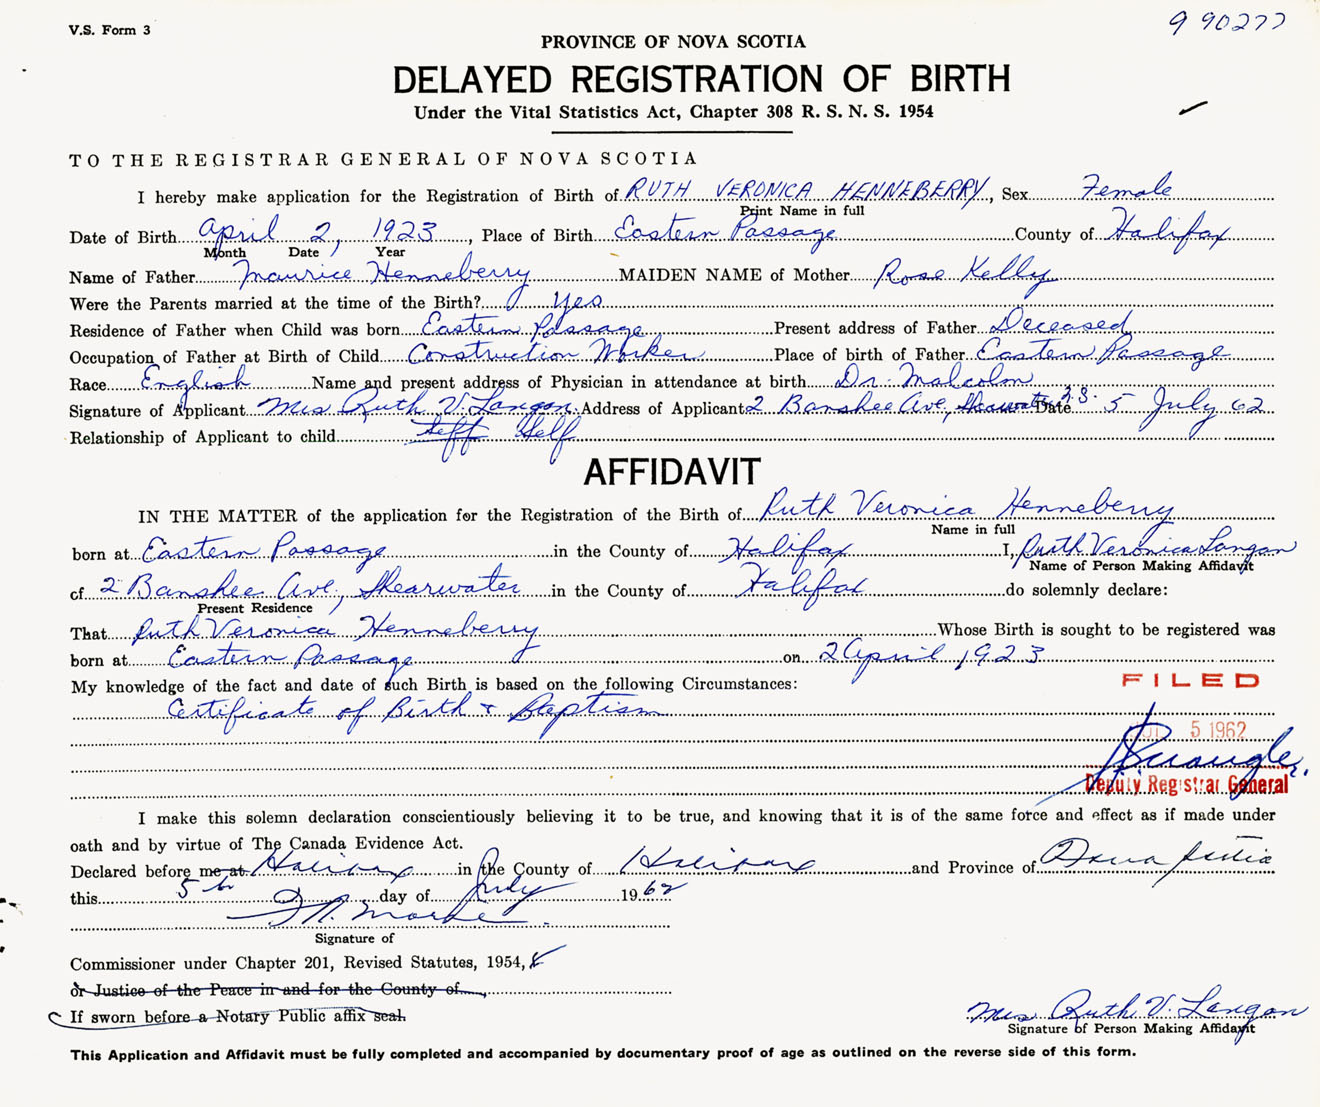 V.S. Form 3
9 90277
PROVINCE OF NOVA SCOTIA
DELAYED REGISTRATION OF BIRTH
Under the Vital Statistics Act, Chapter 308 R. S. N. S. 1954
TO THE REGISTRAR GENERAL OF NOVA SCOTIA
I hereby make application for the Registration of Birth of RUTH VERONICA HENNEBERRY, Sex Female
Print Name in full
Date of Birth April 2, 1923, Place of Birth Eastern Passage County of Halifax
Month Date Year
Name of Father Maurice Henneberry MAIDEN NAME of Mother Rose Kelly
Were the Parents married at the time of the Birth? Yes
Residence of Father when Child was born Eastern Passage Present address of Father Deceased
Occupation of Father at Birth of Child Construction Worker Place of birth of Father Eastern Passage
Race English Name and present address of Physician in attendance at birth Dr. Malcolm
Signature of Applicant Mrs Ruth V. Langan Address of Applicant 2 Banshee Ave, Shearwater N.S. Date 5 July 62
Relationship of Applicant to child Self Self
AFFIDAVIT
IN THE MATTER of the application for the Registration of the Birth of Ruth Veronica Henneberry
Name in full
born at Eastern Passage in the County of Halifax I, Ruth Veronica Langan
Name of Person Making Affidavit
of 2 Banshee Ave, Shearwater in the County of Halifax do solemnly declare:
Present Residence
That Ruth Veronica Henneberry Whose Birth is sought to be registered was
born at Eastern Passage on 2 April 1923
My knowledge of the fact and date of such Birth is based on the following Circumstances:
FILED
Certificate of Birth & Baptism
5 1962
Deputy Registrar General
I make this solemn declaration conscientiously believing it to be true, and knowing that it is of the same force and effect as if made under
oath and by virtue of The Canada Evidence Act.
Declared before me at Halifax in the County of Halifax and Province of Nova Scotia
this 5th day of July 1962
Signature of
Commissioner under Chapter 201, Revised Statutes, 1954,
or Justice of the Peace in and for the County of
If sworn before a Notary Public affix seal.
Mrs Ruth V. Langan
Signature of Person Making Affidavit
This Application and Affidavit must be fully completed and accompanied by documentary proof of age as outlined on the reverse side of this form.